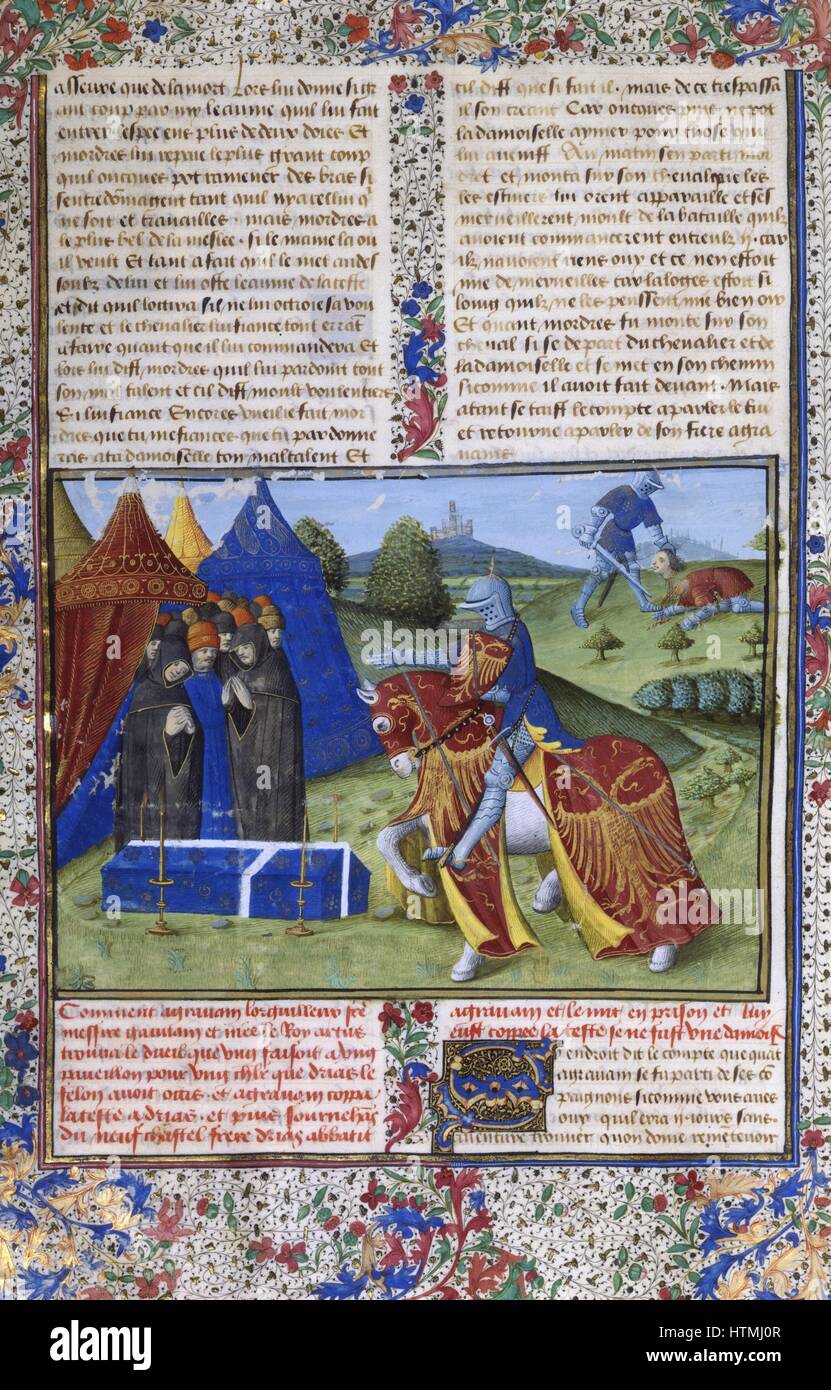 asseure que de la mort Lors lui donne si gr
ant coup par my le eaume quil lui fait
entrer lespee ens plus de deux doies Et
mordres lui repaie le plus grant coup
quil oncques pot ramener des bras si
sentredommagent tant quil ny a cellui q
ne soit et travailles . mais mordres a
le plus bel de la meslee . si le maine la ou
il veult Et tant a fait quil le met au des
soubz de lui et lui oste le aume de la teste
et dit quil loccira sil ne lui octroie sa vou
lente et le chevalier lui fiance tout errãt
a faire quant que il lui commandera Et
lors lui dist mordres quil lui pardoint tout
son mal talent et cil dist moult voulentiers
Si lui fiance Encores vueil ie fait mor
dres que tu me fiances que tu pardonne
ras a ta damoiselle ton maltalent Et
cil dist que si fait il . mais de ce trespassa
il son creant Car oncques puis ne pot
la damoiselle aymer pour chose qui
lui avenist Au matin sen parti mor
dret et monta sur son cheval que les
les escuiers lui orent appareille et ses
merveillerent moult de la bataille quilz
avoient commancerent entreulx ij . car
ilz navoient riens ouy et ce nen estoit
mie de merveilles car la loges estoit si
loing quilz ne les peussent mie bien ouir
Et quant mordres fu monte sur son
cheval si se depart du chevalier et de
la damoiselle et se met en son chemin
sicomme il avoit fait devant . Mais
atant se taist le compte a parler de lui
et retourne a parler de son frere agra
vains
Comment agravain lorguilleux frē
messire gauvain et niés le Roy artus
trouva le dueil que ung faisoit a ung
paveillon pour ung chlr que drias le
felon avoit occis . et agravain coppa
la teste a drias . et puis sournehās
du neuf chastel frere drias abbatit
agravain et le mit en prison et luy
eust coppee la teste se ne fust une damoisˡˡᵉ
endroit dit le compte que quāt
agravain se fu parti de ses cō
paignons si comme vous avez
ouy quil erra ij iours sans
aventure trouver quon doive ramentevoir
alamy
Image ID: HTMJ0R
www.alamy.com